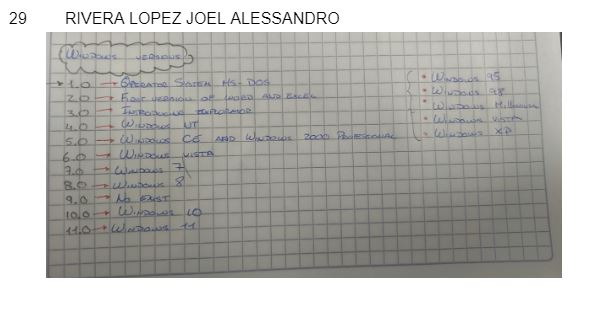 29 RIVERA LOPEZ JOEL ALESSANDRO
WINDOWS VERSIONS
1.0 → OPERATOR SISTEM MS-DOS
2.0 → FIRST VERSION OF WORD AND EXCEL
3.0 → INTRODUCING EXPLORADOR
4.0 → WINDOWS NT
5.0 → WINDOWS CE AND WINDOWS 2000 PROFESSIONAL
6.0 → WINDOWS VISTA
7.0 → WINDOWS 7
8.0 → WINDOWS 8
9.0 → NO EXIST
10.0 → WINDOWS 10
11.0 → WINDOWS 11
• WINDOWS 95
• WINDOWS 98
• WINDOWS Millenium
• WINDOWS VISTA
• WINDOWS XP